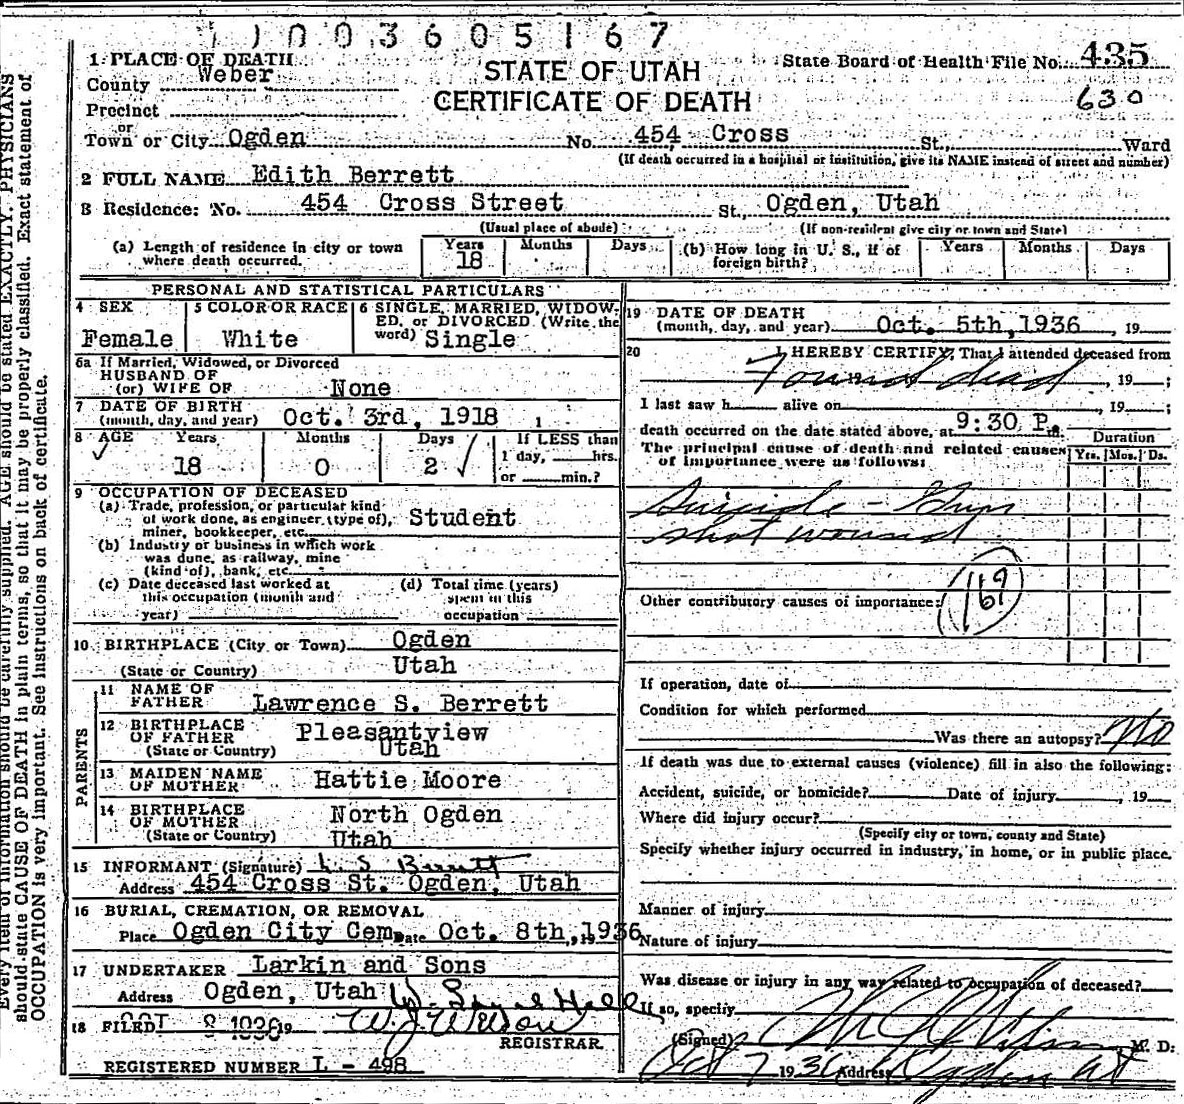 1003605167
1 PLACE OF DEATH
County Weber
STATE OF UTAH
CERTIFICATE OF DEATH
State Board of Health File No. 435
630
Precinct
or
Town or City Ogden No. 454 Cross St., Ward
(If death occurred in a hospital or institution, give its NAME instead of street and number)
2 FULL NAME Edith Berrett
3 Residence: No. 454 Cross Street St., Ogden, Utah
(Usual place of abode) (If non-resident give city or town and State)
(a) Length of residence in city or town where death occurred. Years 18 Months Days
(b) How long in U. S., if of foreign birth? Years Months Days
PERSONAL AND STATISTICAL PARTICULARS
4 SEX
Female
5 COLOR OR RACE
White
6 SINGLE, MARRIED, WIDOW-
ED, or DIVORCED (Write the
word) Single
6a If Married, Widowed, or Divorced
HUSBAND OF
(or) WIFE OF None
7 DATE OF BIRTH
(month, day, and year) Oct. 3rd, 1918
8 AGE Years Months Days If LESS than
18 0 2 1 day, hrs.
or min.?
9 OCCUPATION OF DECEASED
(a) Trade, profession, or particular kind
of work done, as engineer (type of), Student
miner, bookkeeper, etc.
(b) Industry or business in which work
was done, as railway, mine
(kind of), bank, etc.
(c) Date deceased last worked at
this occupation (month and
year)
(d) Total time (years)
spent in this
occupation
10 BIRTHPLACE (City or Town) Ogden
(State or Country) Utah
PARENTS
11 NAME OF
FATHER Lawrence S. Berrett
12 BIRTHPLACE
OF FATHER Pleasantview
(State or Country) Utah
13 MAIDEN NAME
OF MOTHER Hattie Moore
14 BIRTHPLACE
OF MOTHER North Ogden
(State or Country) Utah
15 INFORMANT (Signature) L. S. Berrett
Address 454 Cross St. Ogden, Utah
16 BURIAL, CREMATION, OR REMOVAL
Place Ogden City Cem Date Oct. 8th, 1936
17 UNDERTAKER Larkin and Sons
Address Ogden, Utah
18 FILED OCT 8 1936 19 W. J. Wilson
REGISTRAR
REGISTERED NUMBER L - 498
19 DATE OF DEATH
(month, day, and year) Oct. 5th, 1936, 19
20 I HEREBY CERTIFY, That I attended deceased from
Found dead, 19 ;
I last saw h alive on , 19 ;
death occurred on the date stated above, at 9:30 P. m.
The principal cause of death and related causes
of importance were as follows:
Duration
Yrs. Mos. Ds.
Suicide - Gun
shot wound
Other contributory causes of importance: 169
If operation, date of
Condition for which performed
Was there an autopsy? No
If death was due to external causes (violence) fill in also the following:
Accident, suicide, or homicide? Date of injury , 19
Where did injury occur?
(Specify city or town, county and State)
Specify whether injury occurred in industry, in home, or in public place.
Manner of injury
Nature of injury
Was disease or injury in any way related to occupation of deceased?
If so, specify
(Signed) M. D.
Oct 7 1936 Address Ogden Ut
Every item of information should be carefully supplied. AGE should be stated EXACTLY. PHYSICIANS
should state CAUSE OF DEATH in plain terms, so that it may be properly classified. Exact statement of
OCCUPATION is very important. See instructions on back of certificate.